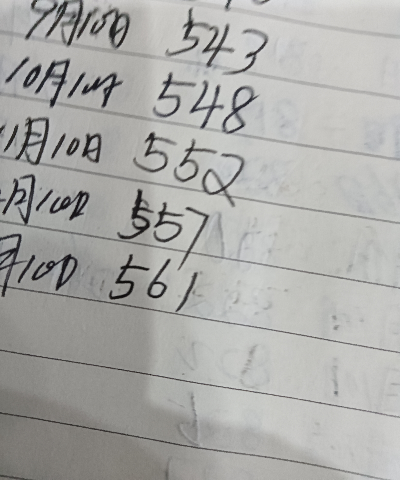 9月10日 543
10月10日 548
11月10日 552
月10日 557
月10日 561